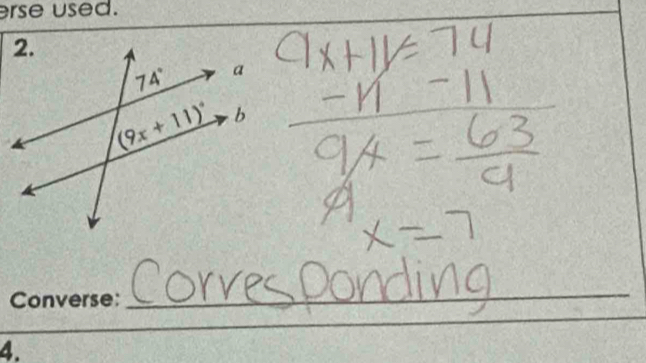 erse used.
2.
74°
a
(9x + 11)°
b
9x+11=74
-11 -11
9x = 63
9 9
x=7
Converse: Corresponding
4.